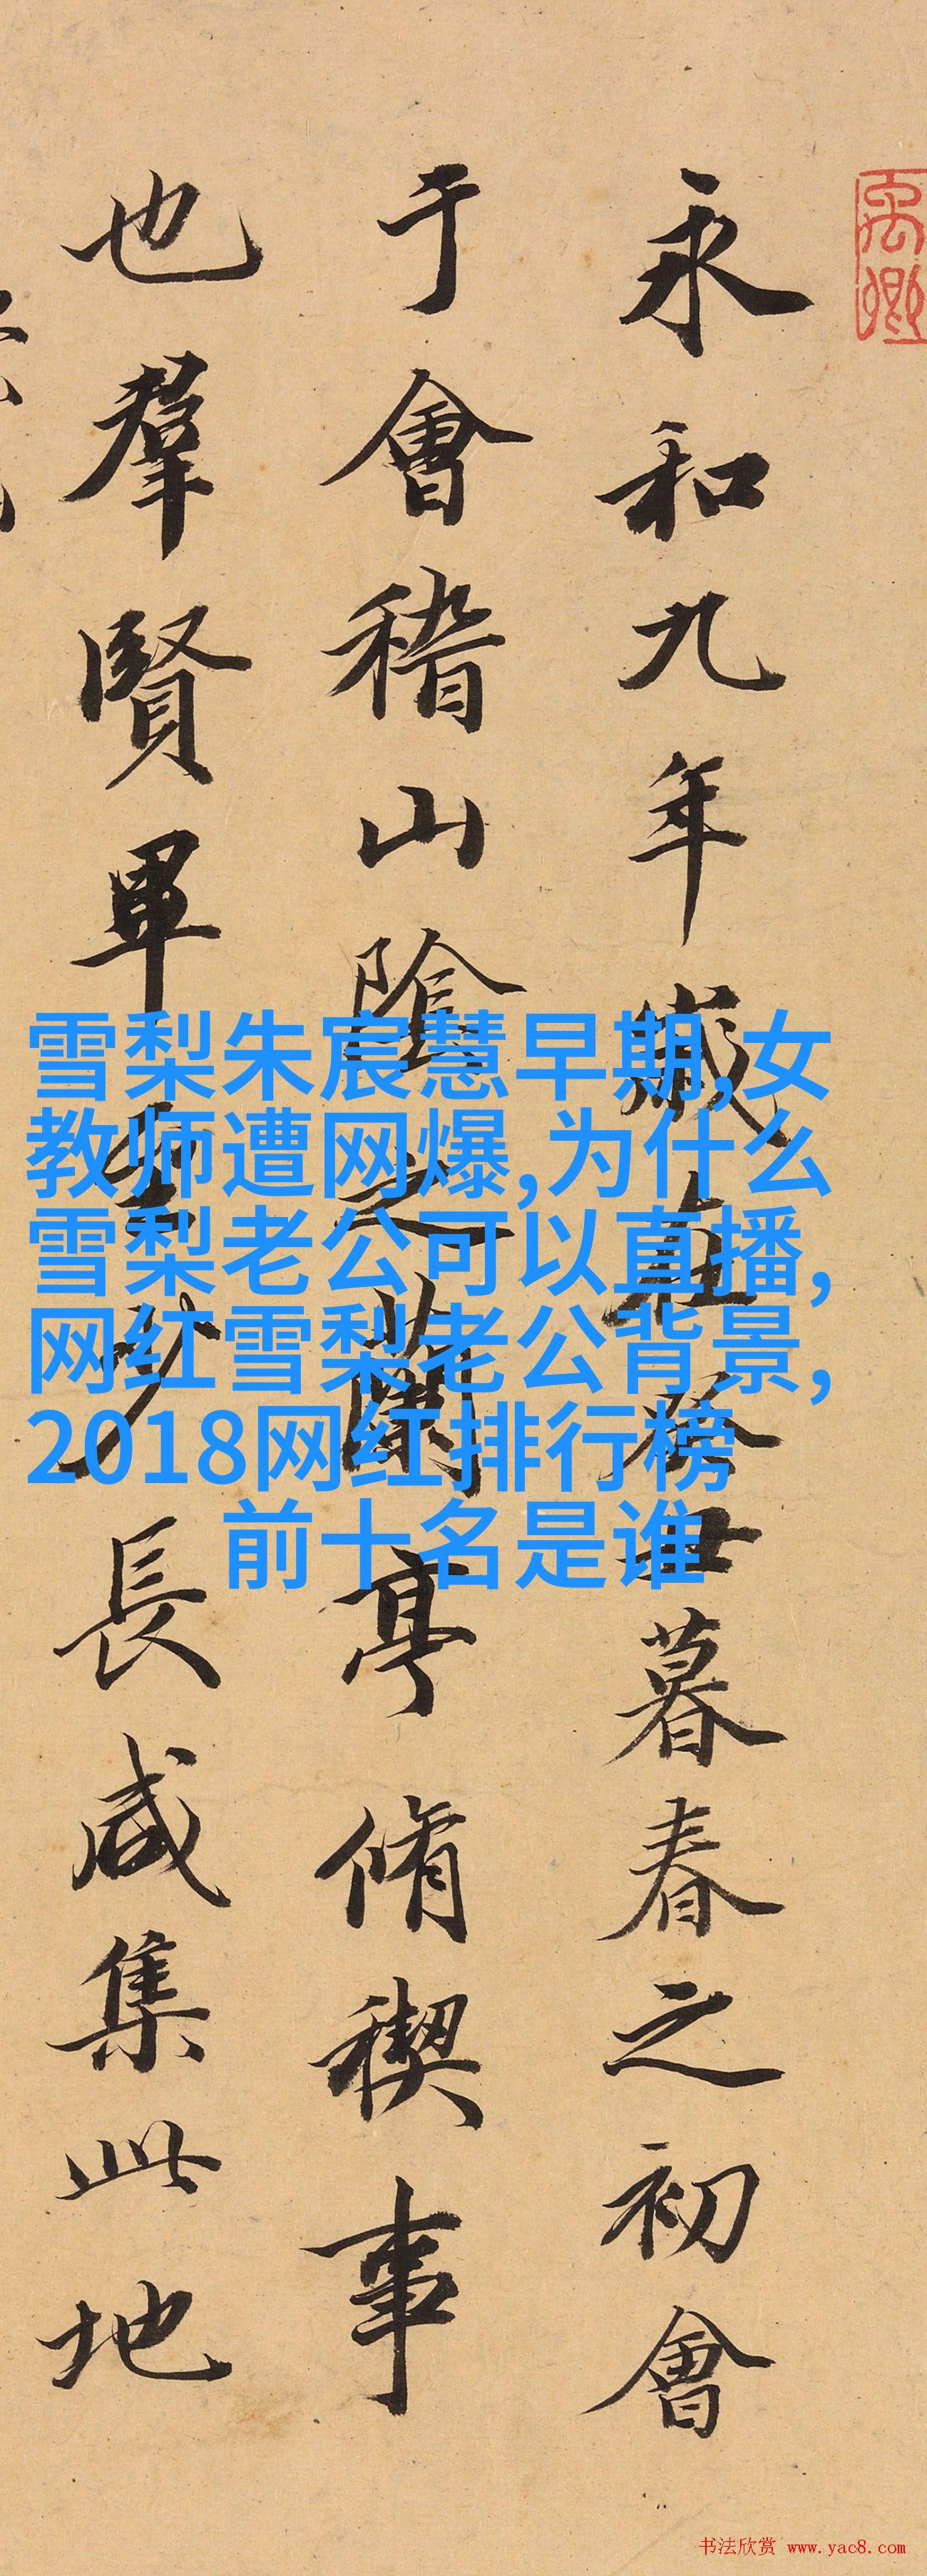 禹卿
永和九年歲在癸丑暮春之初會
于會稽山陰之蘭亭脩稧事
也羣賢畢至少長咸集此地
雪梨朱宸慧早期,女
教师遭网爆,为什么
雪梨老公可以直播,
网红雪梨老公背景,
2018网红排行榜
前十名是谁
书法欣赏 www.yac8.com